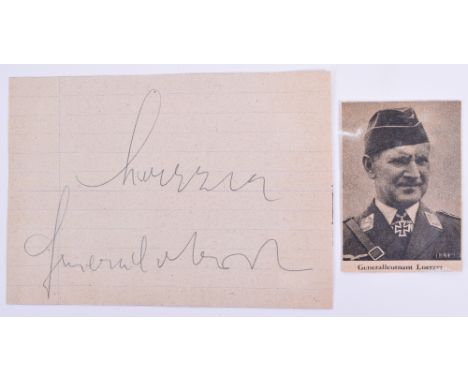 Loerzer
Generaloberst
Generalleutnant Loerzer